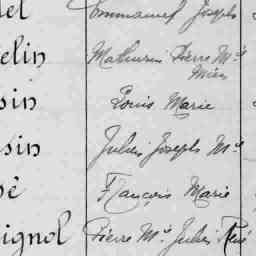 el Emmanuel Joseph
elin Mathurin Pierre Mie
sin Louis Marie
sin Julien Joseph Mie
sé François Marie
ignol Pierre Mie Julien René